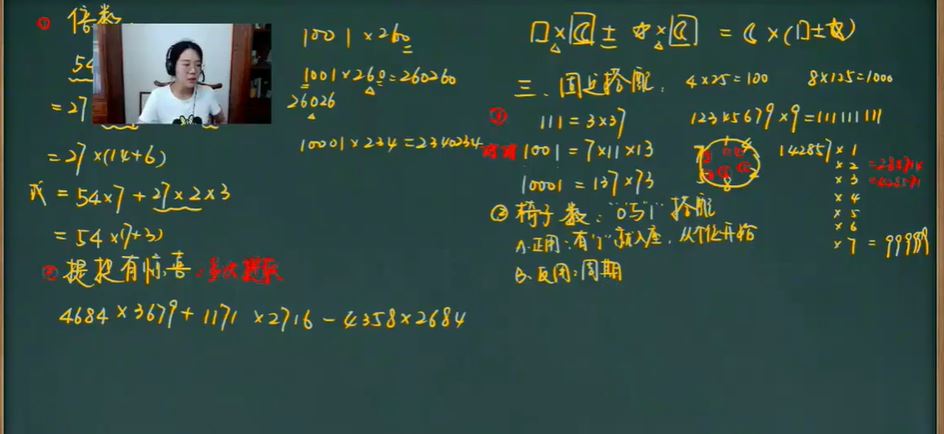 ① 倍数
54
= 27
= 27×(14+6)
或 = 54×7 + 27×2×3
= 54×(7+3)
② 提把有惊喜：多次提取
4684×3679 + 1171×2716 − 4358×2684
1001×260
1001×260=260260
26026
10001×234=2340234
□×☾ ± ☆×☾ = ☾×(□±☆)
三、固定搭配： 4×25=100 8×125=1000
① 111 = 3×37 12345679×9=111111111
1001 = 7×11×13
10001 = 137×73
142857×1
×2 =285714
×3 =428571
×4
×5
×6
×7 = 999999
1 4 2 8 5 7
② 椅子数："0与1"搭配
A.正用：有"1"就入座，从个位开始
B.反用：周期